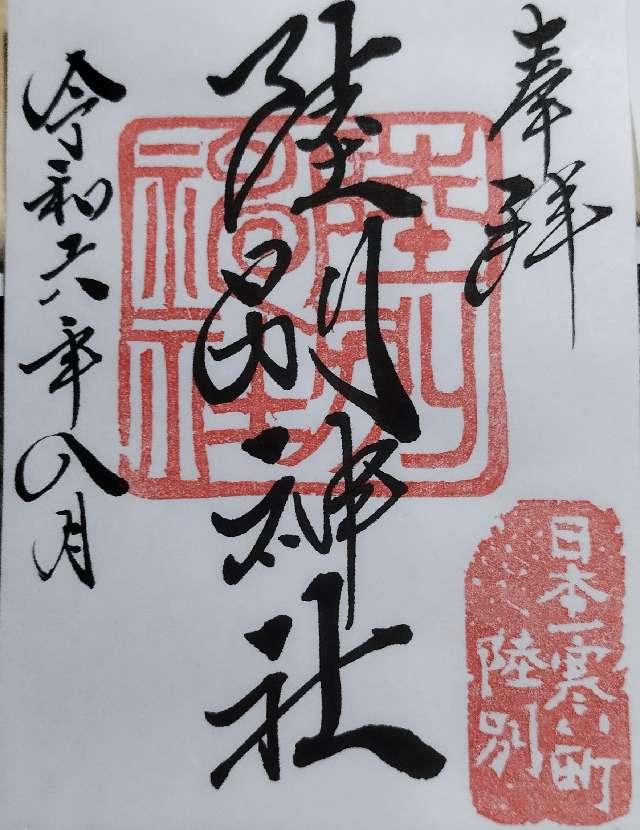 奉拝
陸別神社
陸別
神社
令和六年八月
日本一寒い町
陸別